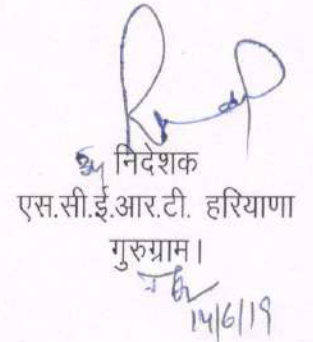 निदेशक
एस.सी.ई.आर.टी. हरियाणा
गुरुग्राम।
14/6/19